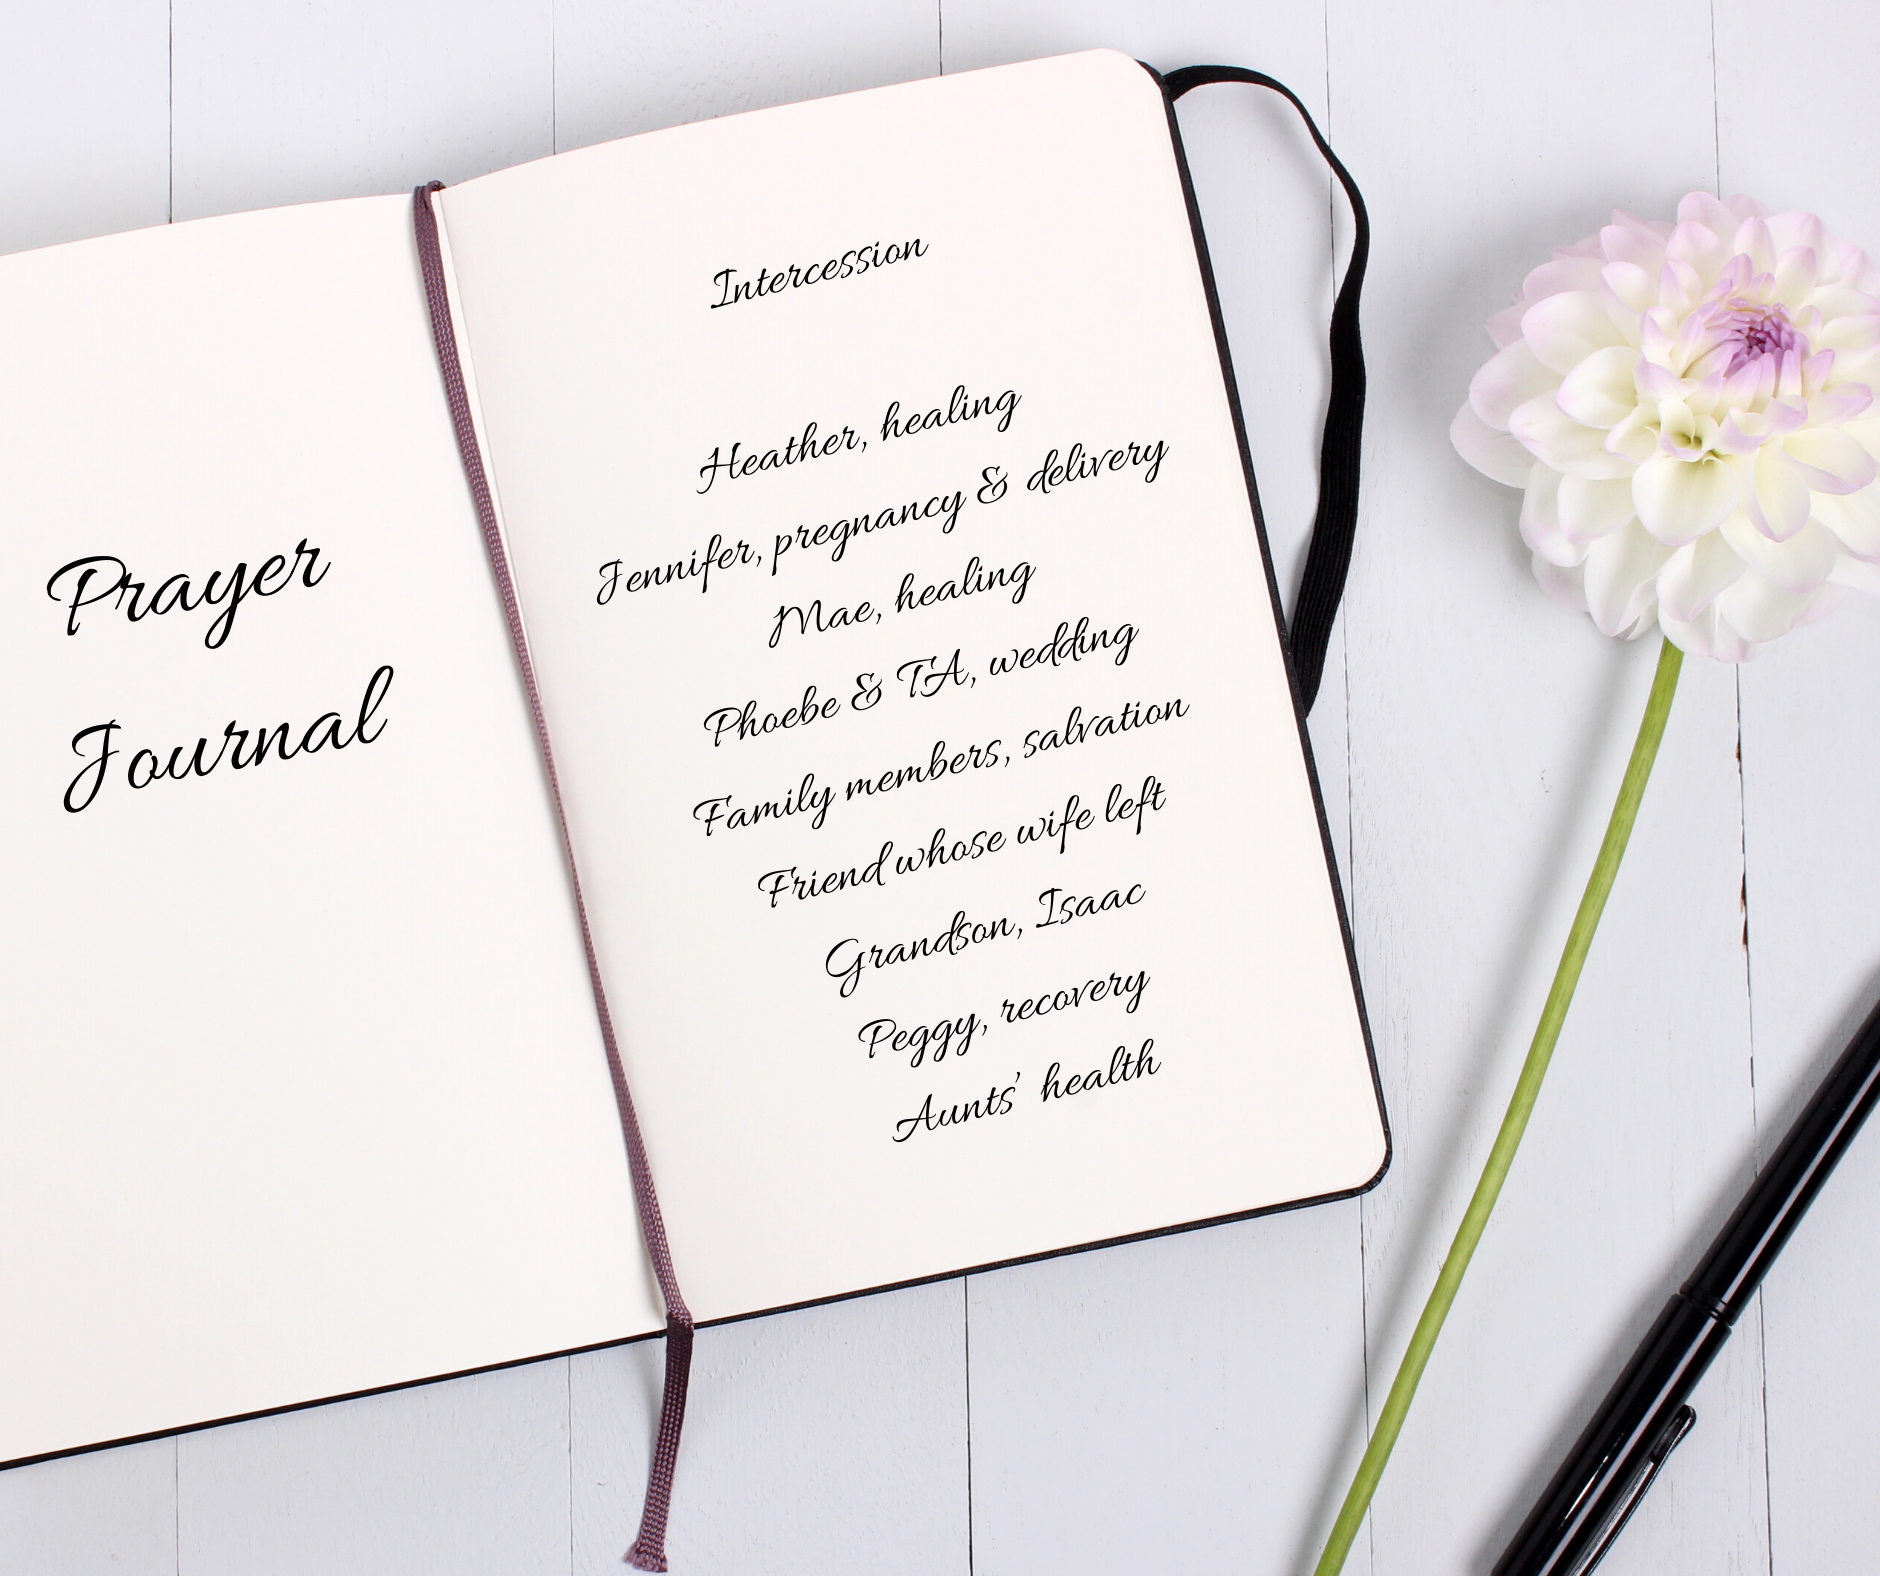 Prayer
Journal
Intercession
Heather, healing
Jennifer, pregnancy & delivery
Mae, healing
Phoebe & TA, wedding
Family members, salvation
Friend whose wife left
Grandson, Isaac
Peggy, recovery
Aunts' health